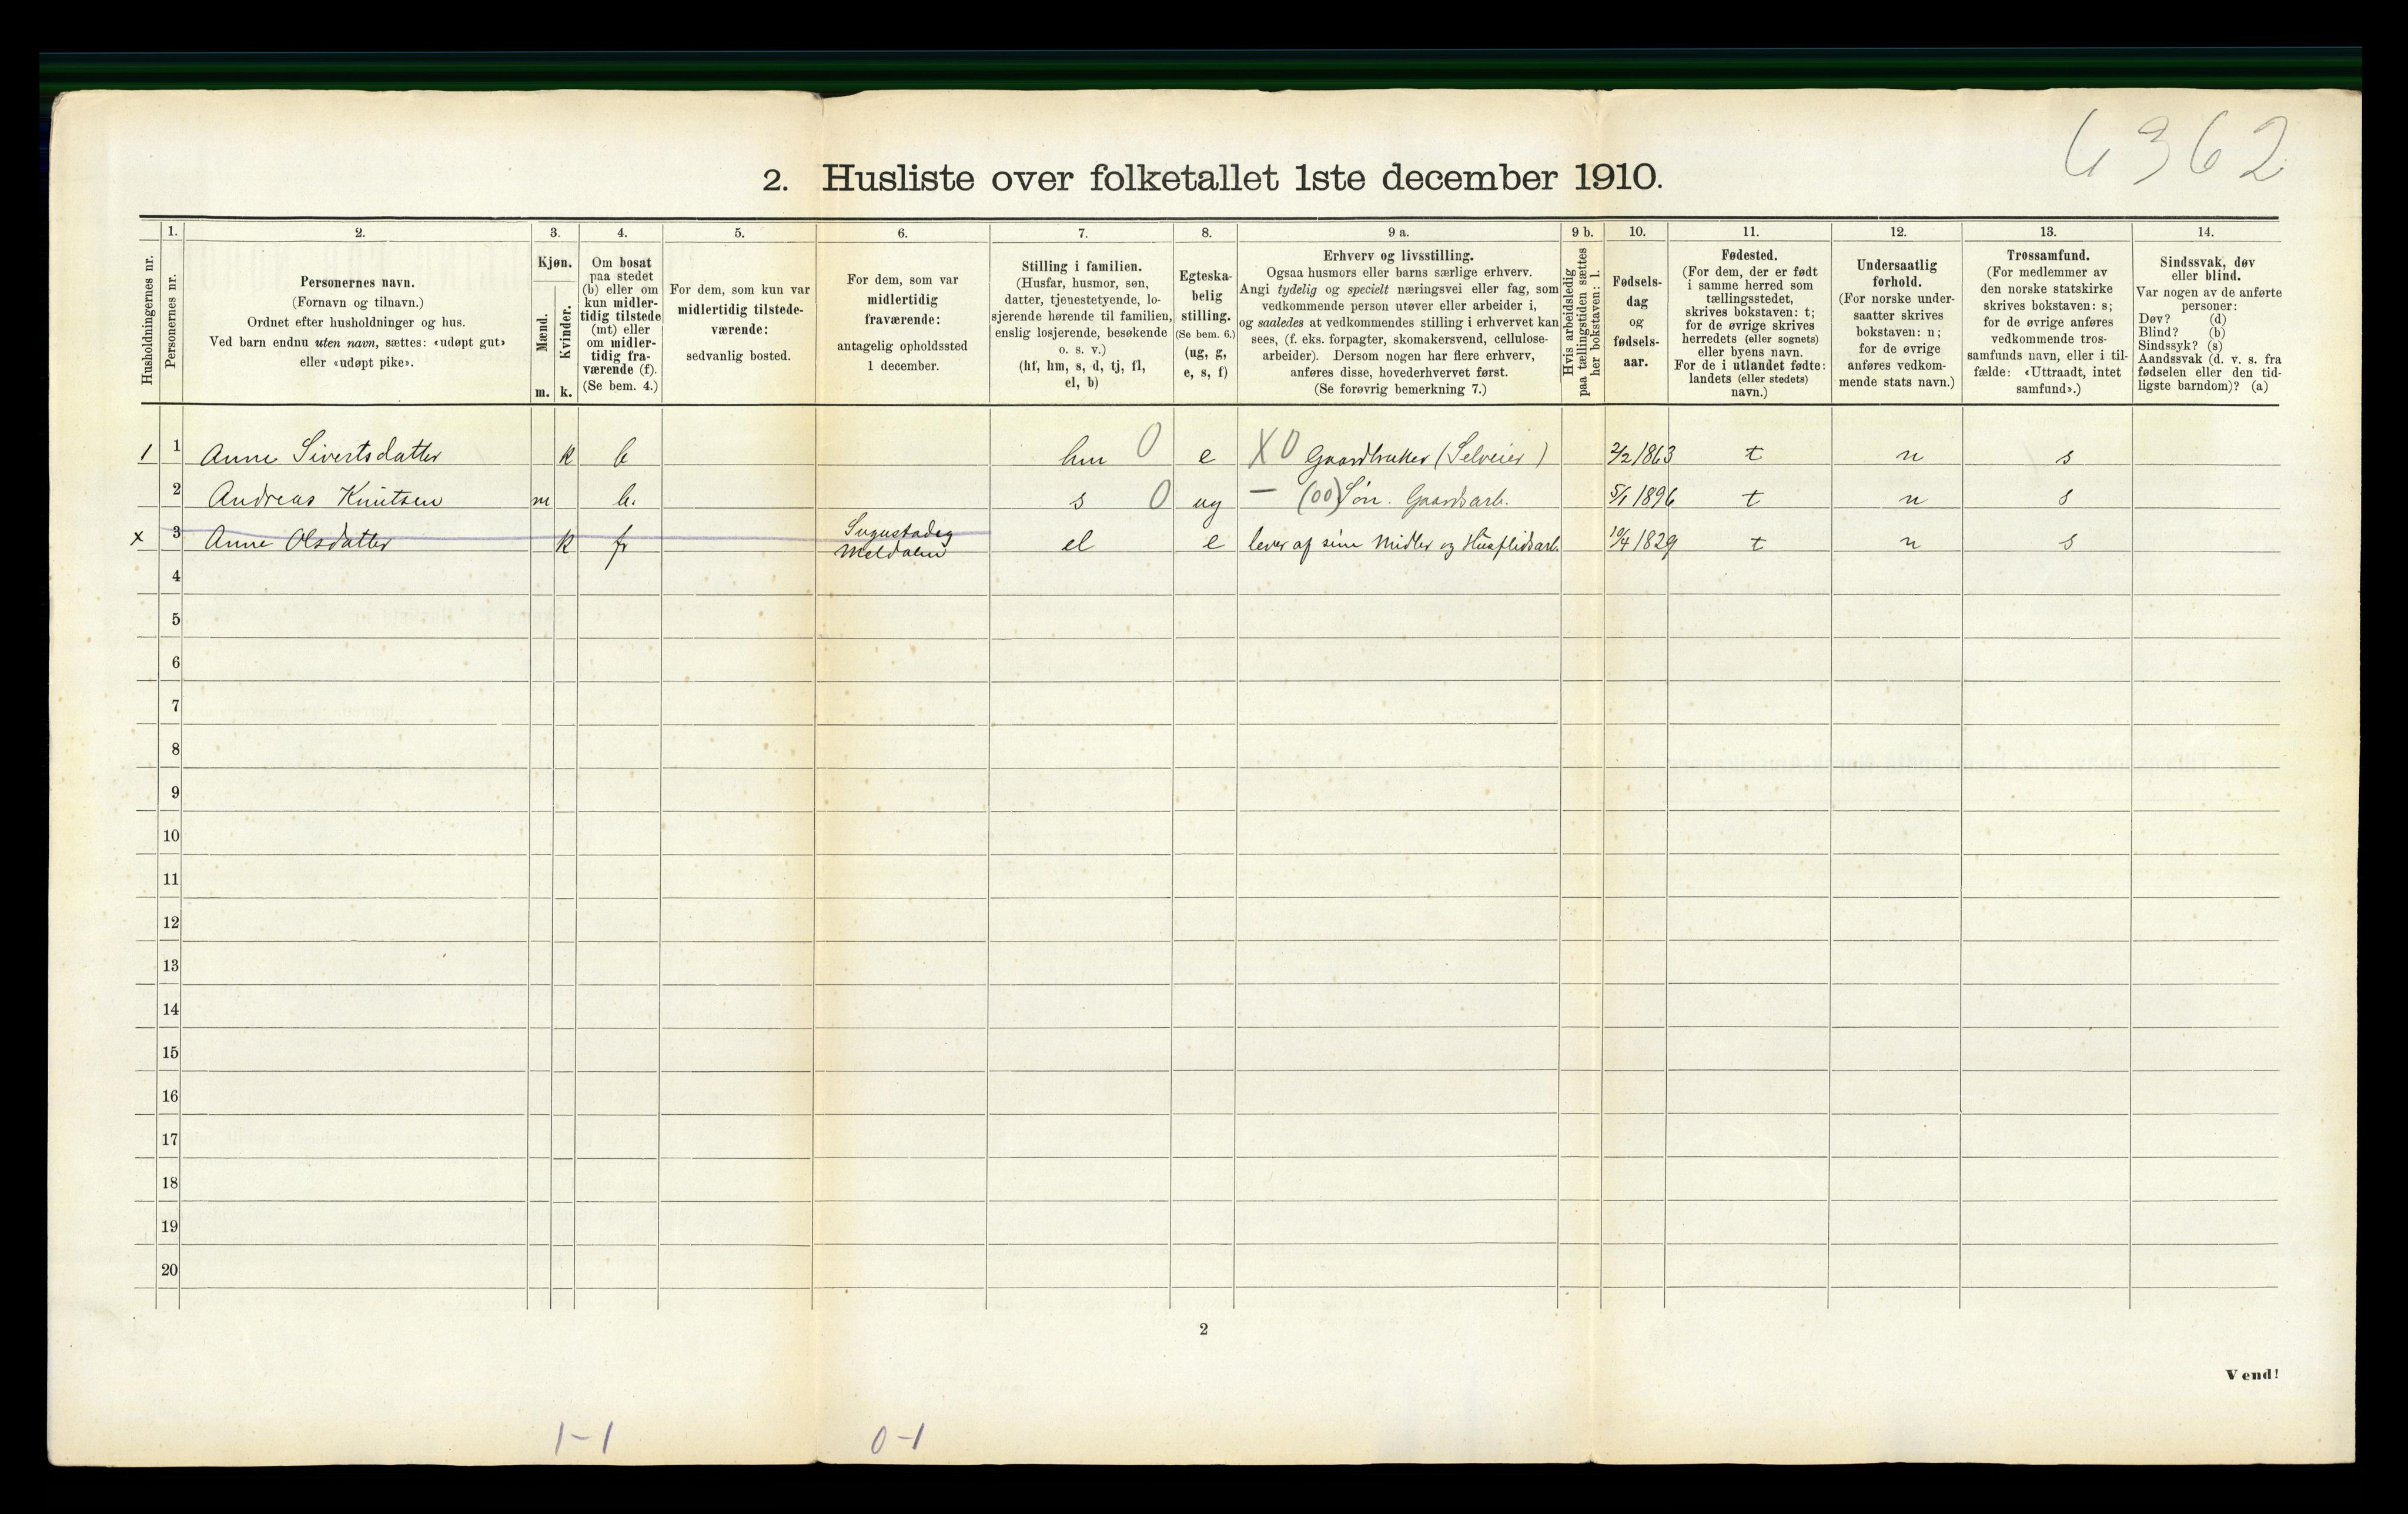 6362
2. Husliste over folketallet 1ste december 1910.
Husholdningernes nr.
1.
Personernes nr.
2.
Personernes navn.
(Fornavn og tilnavn.)
Ordnet efter husholdninger og hus.
Ved barn endnu uten navn, sættes: «udøpt gut»
eller «udøpt pike».
3.
Kjøn.
Mænd.
Kvinder.
m. k.
4.
Om bosat
paa stedet
(b) eller om
kun midler-
tidig tilstede
(mt) eller
om midler-
tidig fra-
værende (f).
(Se bem. 4.)
5.
For dem, som kun var
midlertidig tilstede-
værende:
sedvanlig bosted.
6.
For dem, som var
midlertidig
fraværende:
antagelig opholdssted
1 december.
7.
Stilling i familien.
(Husfar, husmor, søn,
datter, tjenestetyende, lo-
sjerende hørende til familien,
enslig losjerende, besøkende
o. s. v.)
(hf, hm, s, d, tj, fl,
el, b)
8.
Egteska-
belig
stilling.
(Se bem. 6.)
(ug, g,
e, s, f)
9 a.
Erhverv og livsstilling.
Ogsaa husmors eller barns særlige erhverv.
Angi tydelig og specielt næringsvei eller fag, som
vedkommende person utøver eller arbeider i,
og saaledes at vedkommendes stilling i erhvervet kan
sees, (f. eks. forpagter, skomakersvend, cellulose-
arbeider). Dersom nogen har flere erhverv,
anføres disse, hovederhvervet først.
(Se forøvrig bemerkning 7.)
9 b.
Hvis arbeidsledig
paa tællingstiden sættes
her bokstaven: l.
10.
Fødsels-
dag
og
fødsels-
aar.
11.
Fødested.
(For dem, der er født
i samme herred som
tællingsstedet,
skrives bokstaven: t;
for de øvrige skrives
herredets (eller sognets)
eller byens navn.
For de i utlandet fødte:
landets (eller stedets)
navn.)
12.
Undersaatlig
forhold.
(For norske under-
saatter skrives
bokstaven: n;
for de øvrige
anføres vedkom-
mende stats navn.)
13.
Trossamfund.
(For medlemmer av
den norske statskirke
skrives bokstaven: s;
for de øvrige anføres
vedkommende tros-
samfunds navn, eller i til-
fælde: «Uttraadt, intet
samfund».)
14.
Sindssvak, døv
eller blind.
Var nogen av de anførte
personer:
Døv? (d)
Blind? (b)
Sindssyk? (s)
Aandssvak (d. v. s. fra
fødselen eller den tid-
ligste barndom)? (a)
1 1 Anne Sivertsdatter k b hm 0 e X 0 Gaardbruker (Selveier) 2/2 1863 t n s
2 Andreas Knutsen m b. s 0 ug — (00) Søn. Gaardsarb. 5/1 1896 t n s
x 3 Anne Olsdatter k fr Meldalen el e lever af sine Midler og Husflidsarb. 10/4 1829 t n s
4
5
6
7
8
9
10
11
12
13
14
15
16
17
18
19
20
2
Vend!
1-1 0-1